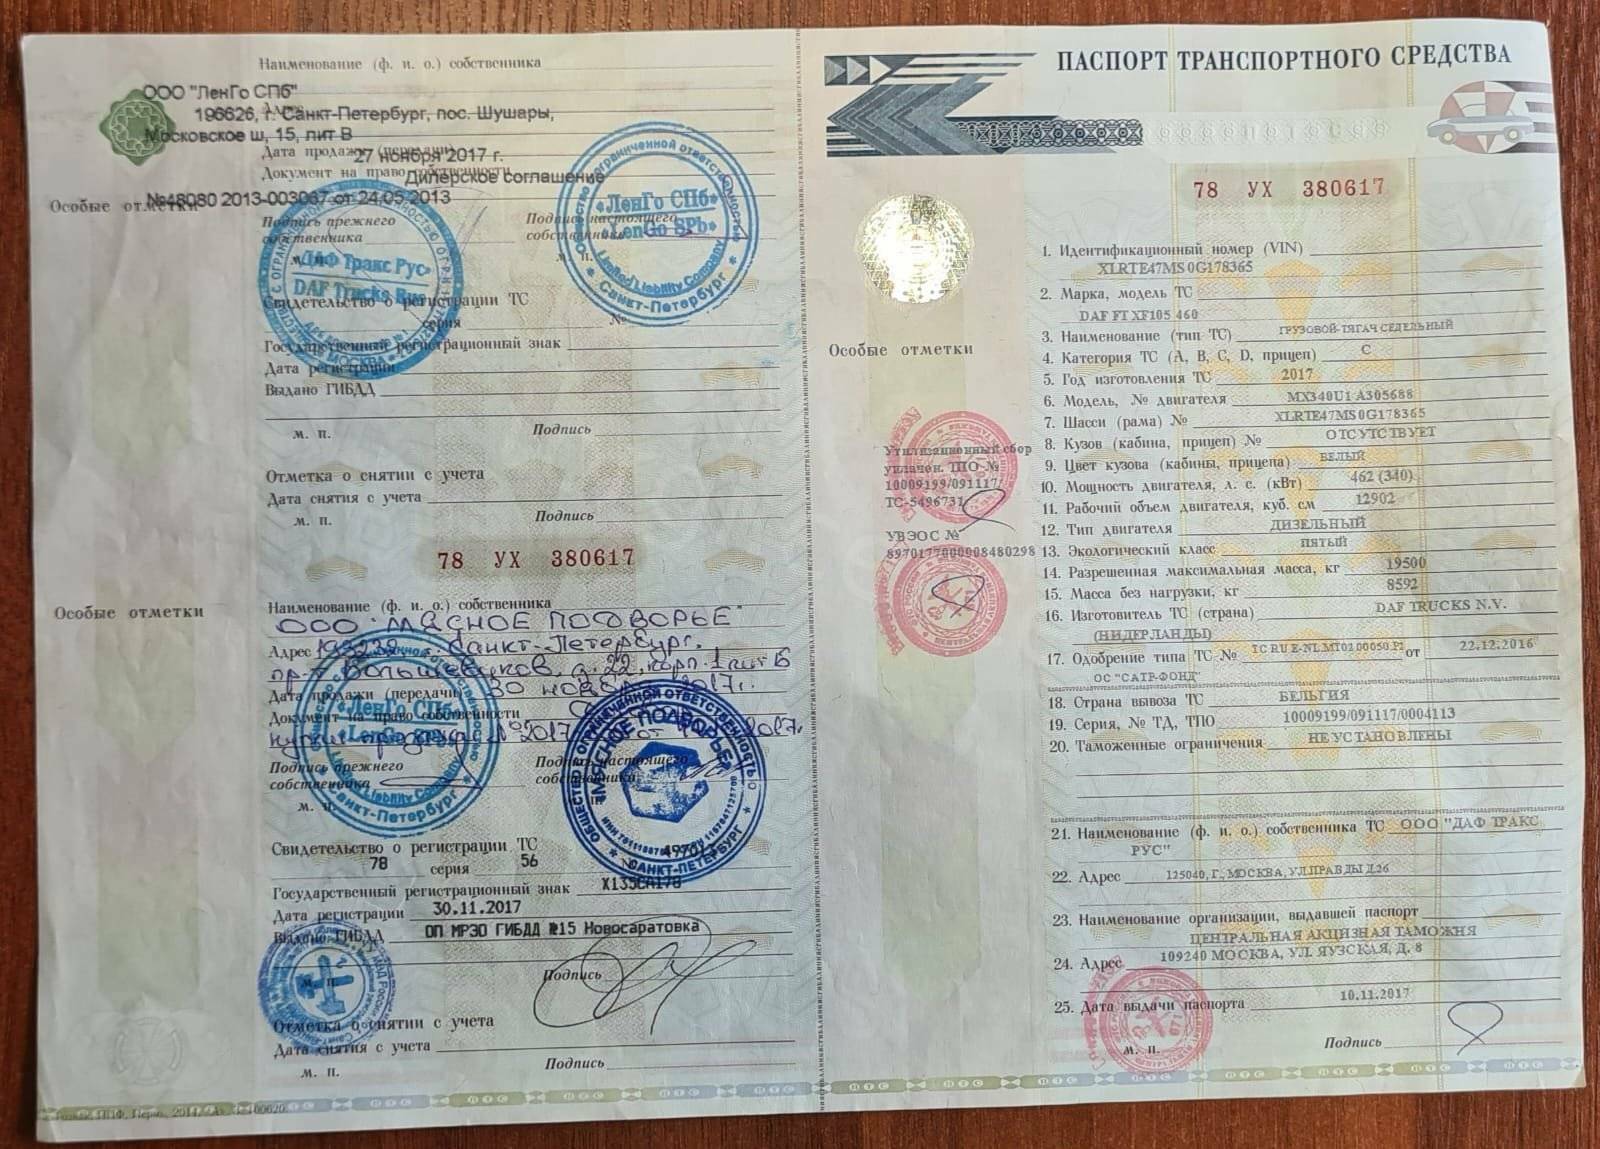 Наименование (ф. и. о.) собственника
ООО "ЛенГо СПб"
196626, г. Санкт-Петербург, пос. Шушары,
Московское ш, 15, лит В
Дата продажи (передачи)
27 ноября 2017 г.
Документ на право собственности
Дилерское Соглашение
№48080 2013-003067 от 24.05.2013
Особые отметки
Подпись прежнего собственника
Подпись настоящего собственника
ДАФ Тракс Рус»
DAF Trucks Rus
МОСКВА
«ЛенГо СПб»
«LenGo SPb»
Limited Liability Company
Санкт-Петербург
Свидетельство о регистрации ТС
серия №
Государственный регистрационный знак
Дата регистрации
Выдано ГИБДД
м. п. Подпись
Отметка о снятии с учета
Дата снятия с учета
м. п. Подпись
78 УХ 380617
Особые отметки
Наименование (ф. и. о.) собственника
ООО "МЯСНОЕ ПОДВОРЬЕ"
Адрес
г. Санкт-Петербург.
пр-т Большевиков, д. 22, корп. 1 лит Б
Дата продажи (передачи) 30 2017г.
Документ на право собственности
Подпись прежнего собственника
Подпись настоящего собственника
м. п.
«ЛенГо СПб»
«LenGo SPb»
Limited Liability Company
Санкт-Петербург
ОБЩЕСТВО С ОГРАНИЧЕННОЙ ОТВЕТСТВЕННОСТЬЮ
"МЯСНОЕ ПОДВОРЬЕ"
САНКТ-ПЕТЕРБУРГ
Свидетельство о регистрации ТС
78 серия 56 №
Государственный регистрационный знак Х135СА178
Дата регистрации 30.11.2017
Выдано ГИБДД ОП МРЭО ГИБДД №15 Новосаратовка
м. п. Подпись
Отметка о снятии с учета
Дата снятия с учета
м. п. Подпись
ПАСПОРТ ТРАНСПОРТНОГО СРЕДСТВА
78 УХ 380617
Особые отметки
Утилизационный сбор
уплачен. ТПО №
10009199/091117/
ТС-5496731
УВЭОС №
8970177000008480298
1. Идентификационный номер (VIN)
XLRTE47MS0G178365
2. Марка, модель ТС
DAF FT XF105 460
3. Наименование (тип ТС) ГРУЗОВОЙ-ТЯГАЧ СЕДЕЛЬНЫЙ
4. Категория ТС (А, В, С, D, прицеп) С
5. Год изготовления ТС 2017
6. Модель, № двигателя MX340U1 A305688
7. Шасси (рама) № XLRTE47MS0G178365
8. Кузов (кабина, прицеп) № ОТСУТСТВУЕТ
9. Цвет кузова (кабины, прицепа) БЕЛЫЙ
10. Мощность двигателя, л. с. (кВт) 462 (340)
11. Рабочий объем двигателя, куб. см 12902
12. Тип двигателя ДИЗЕЛЬНЫЙ
13. Экологический класс ПЯТЫЙ
14. Разрешенная максимальная масса, кг 19500
15. Масса без нагрузки, кг 8592
16. Изготовитель ТС (страна) DAF TRUCKS N.V.
(НИДЕРЛАНДЫ)
17. Одобрение типа ТС № TC RU E-NL.MT02.00050.P2 от 22.12.2016
ОС "САТР-ФОНД"
18. Страна вывоза ТС БЕЛЬГИЯ
19. Серия, № ТД, ТПО 10009199/091117/0004113
20. Таможенные ограничения НЕ УСТАНОВЛЕНЫ
21. Наименование (ф. и. о.) собственника ТС ООО "ДАФ ТРАКС
РУС"
22. Адрес 125040, Г., МОСКВА, УЛ.ПРАВДЫ Д.26
23. Наименование организации, выдавшей паспорт
ЦЕНТРАЛЬНАЯ АКЦИЗНАЯ ТАМОЖНЯ
24. Адрес 109240 МОСКВА, УЛ. ЯУЗСКАЯ, Д. 8
25. Дата выдачи паспорта 10.11.2017
м. п. Подпись